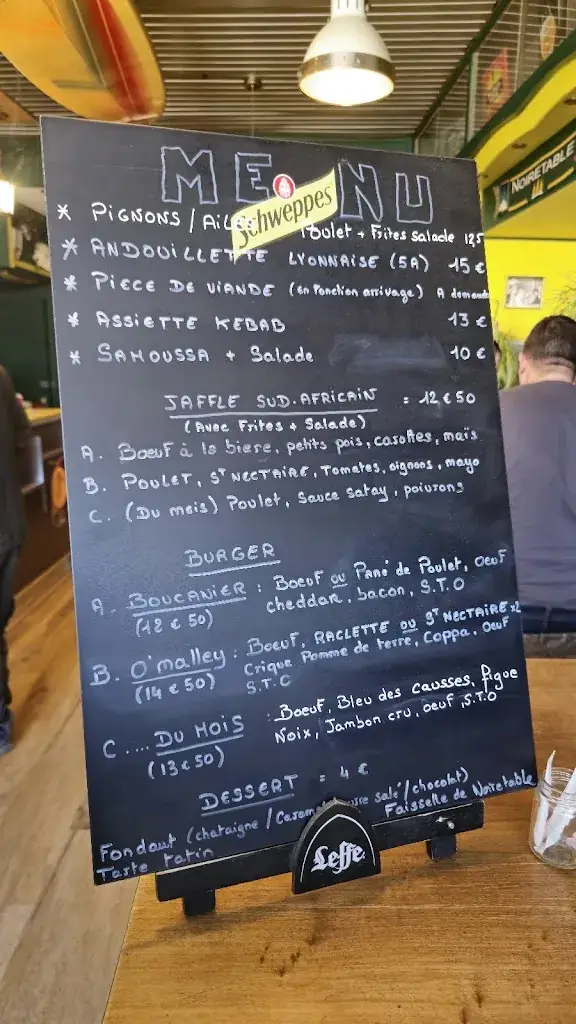 MENU
Schweppes
* PIGNONS / AILES Poulet + Frites salade 12,5
* ANDOUILLETTE LYONNAISE (5A) 15 €
* PIECE DE VIANDE (en fonction arrivage) A demande
* ASSIETTE KEBAB 13 €
* SAMOUSSA + Salade 10 €
JAFFLE SUD.AFRICAIN = 12€50
(Avec Frites + Salade)
A. Boeuf à la biere, petits pois, carottes, maïs
B. POULET, ST NECTAIRE, Tomates, oignons, mayo
C. (Du mois) Poulet, Sauce satay, poivrons
BURGER
A. BOUCANIER : Boeuf ou Pané de Poulet, oeuf
(12€50) cheddar, bacon, S.T.O
B. O'malley : Boeuf, RACLETTE ou ST NECTAIRE x2
(14€50) Crique Pomme de terre, Coppa, oeuf
S.T.O
C.... DU MOIS : Boeuf, Bleu des causses, figue
(13€50) Noix, Jambon cru, oeuf, S.T.O
DESSERT = 4 €
Fondant (chataigne / Caramel salé / chocolat)
Tarte tatin Faisselle de Noiretable
Leffe
NOIRETABLE